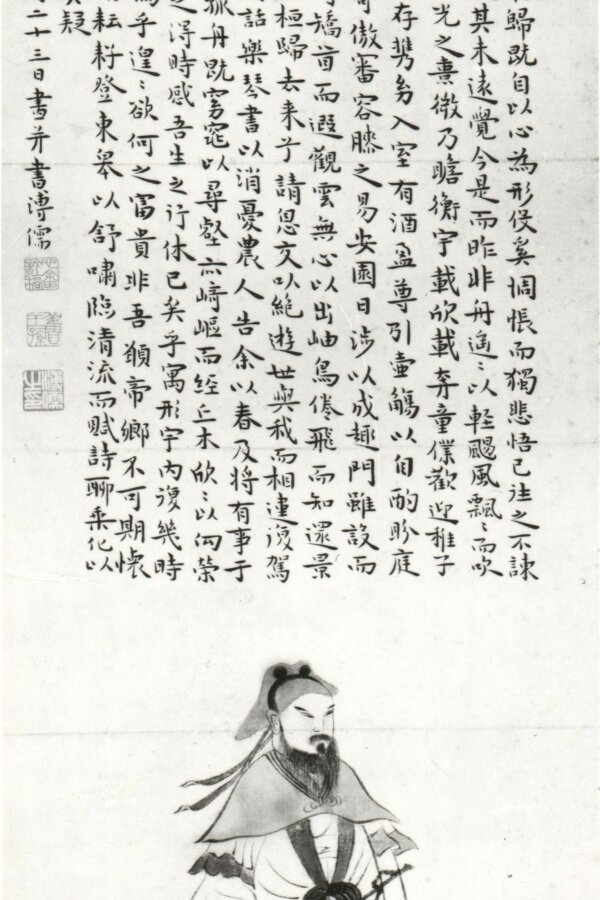 歸既自以心為形役奚惆悵而獨悲悟已往之不諫
其未遠覺今是而昨非舟遙々以輕颺風飄々而吹
光之熹微乃瞻衡宇載欣載奔童僕歡迎稚子
存攜幼入室有酒盈尊引壺觴以自酌眄庭
傲審容膝之易安園日涉以成趣門雖設而
矯首而遐觀雲無心以出岫鳥倦飛而知還景
桓歸去来兮請息交以絕遊世與我而相違復駕
話樂琴書以消憂農人告余以春及將有事于
孤舟既窈窕以尋壑亦崎嶇而經丘木欣々以向榮
之得時感吾生之行休已矣乎寓形宇內復幾時
為乎遑々欲何之富貴非吾願帝鄉不可期懷
耘耔登東皋以舒嘯臨清流而賦詩聊乘化以
疑
二十三日書并書溥儒